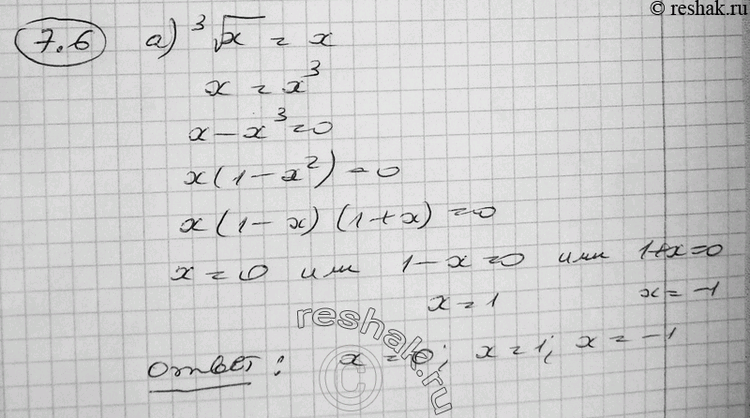 © reshak.ru
7.6 а) ³√x = x
x = x³
x - x³ = 0
x(1 - x²) = 0
x(1 - x)(1 + x) = 0
x = 0 или 1 - x = 0 или 1 + x = 0
x = 1 x = -1
reshak.ru
©
Ответ: x = 0; x = 1; x = -1